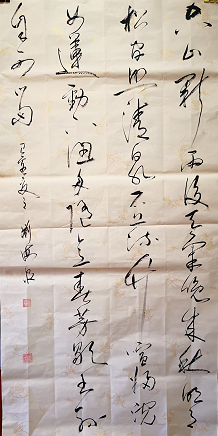 空山新雨後天氣晚來秋明月
松間照清泉石上流竹喧歸浣
女蓮動下漁舟隨意春芳歇王孫
自可留